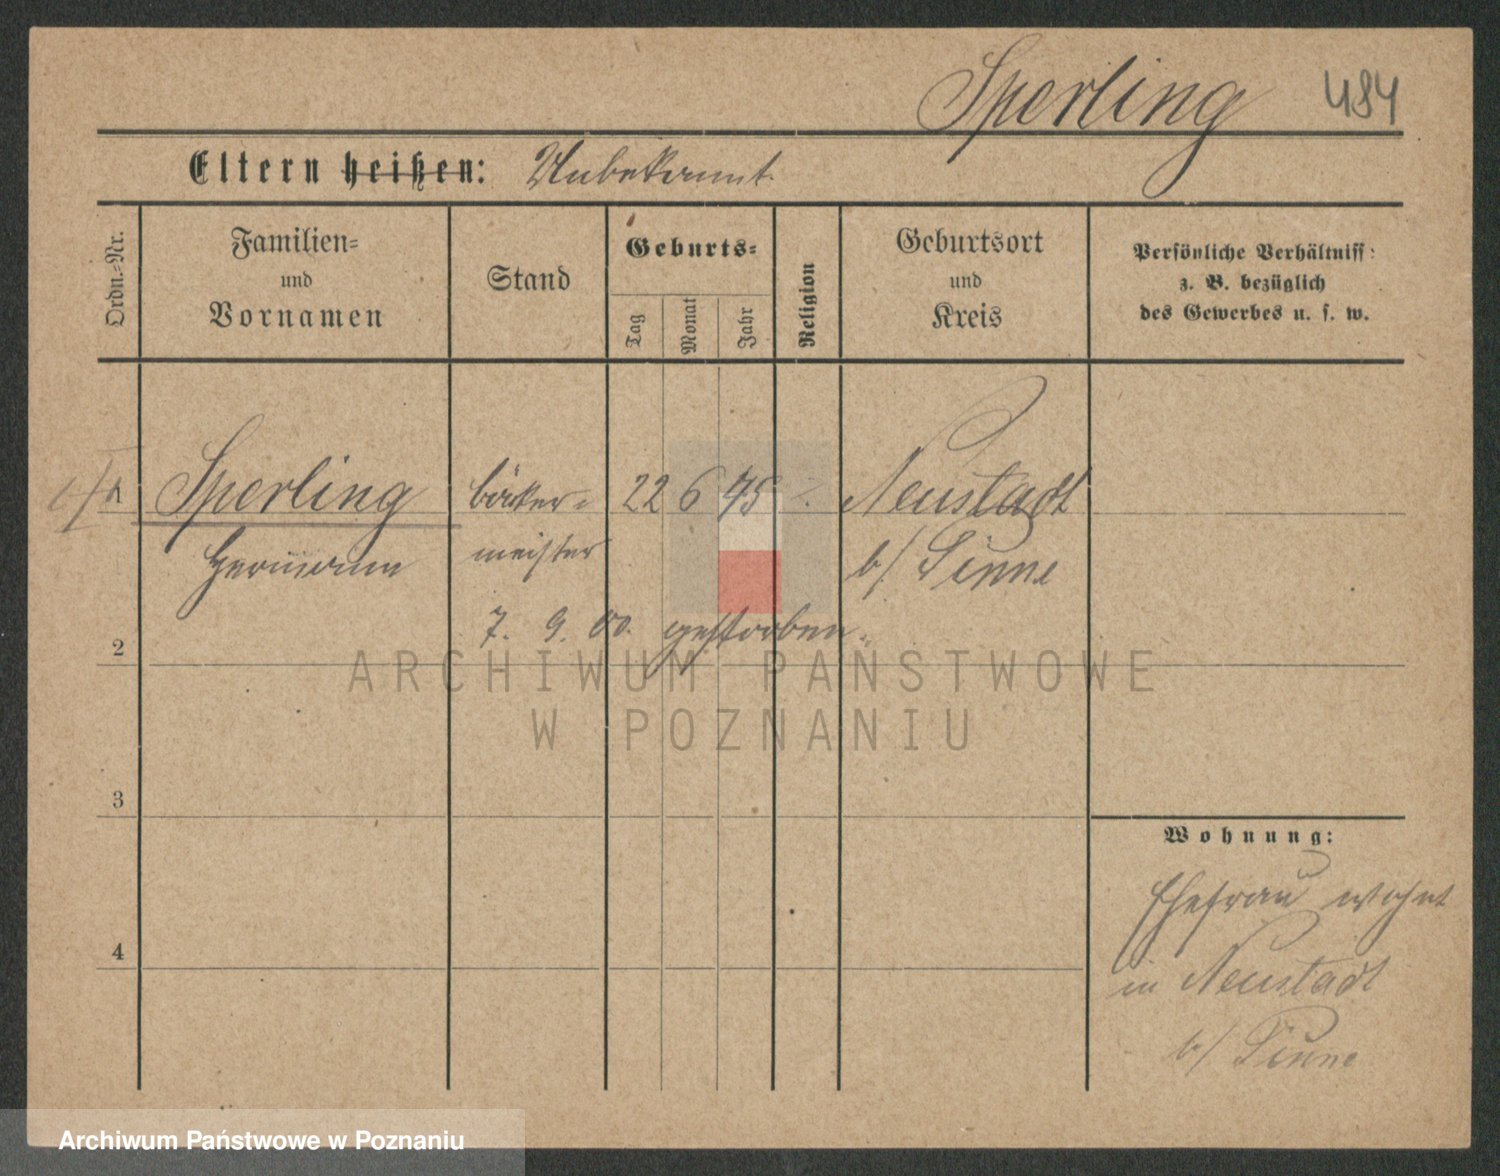 Sperling 484
Eltern heißen: Unbekannt
Ordn.-Nr.
Familien-
und
Vornamen
Stand
Geburts-
Tag
Monat
Jahr
Religion
Geburtsort
und
Kreis
Persönliche Verhältniss:
z. B. bezüglich
des Gewerbes u. s. w.
1 Sperling bäcker- 22 6 75 Neustadt
Hermann meister b/ Pinne
7. 9. 00. gestorben.
2
ARCHIWUM PAŃSTWOWE
W POZNANIU
3
Wohnung:
Ehefrau wohnt
4
in Neustadt
b/ Pinne
Archiwum Państwowe w Poznaniu